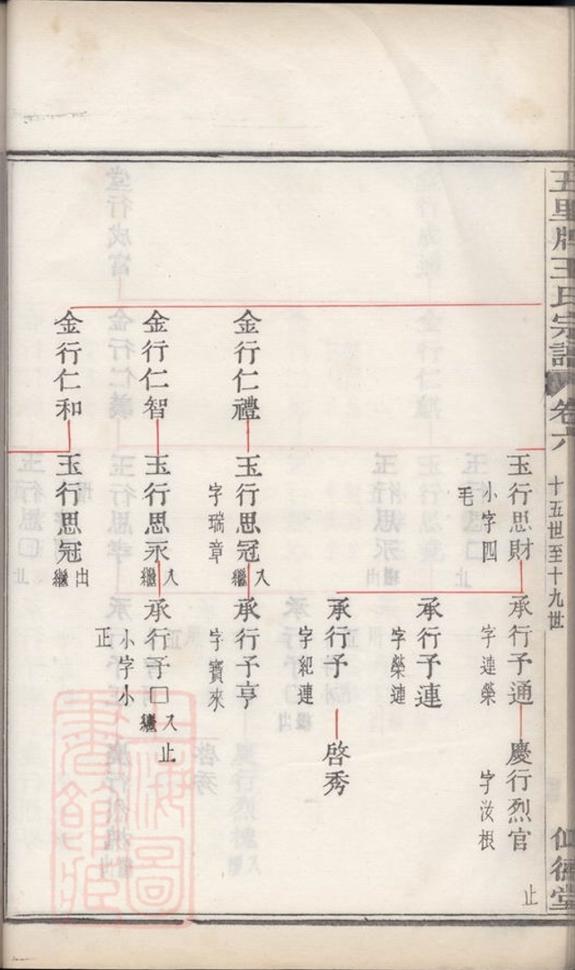 五里牌王氏宗譜
卷六
十五世至十九世
玉行思財
小字四
毛
承行予通
字連榮
慶行烈官
字汝根
止
承行予連
字榮連
承行予
字紀連
啓秀
金行仁禮
玉行思冠
入
繼
字瑞章
承行予亨
字寶來
金行仁智
玉行思永
入
繼
承行予□
入
繼
小字小
正
止
金行仁和
玉行思冠
出
繼